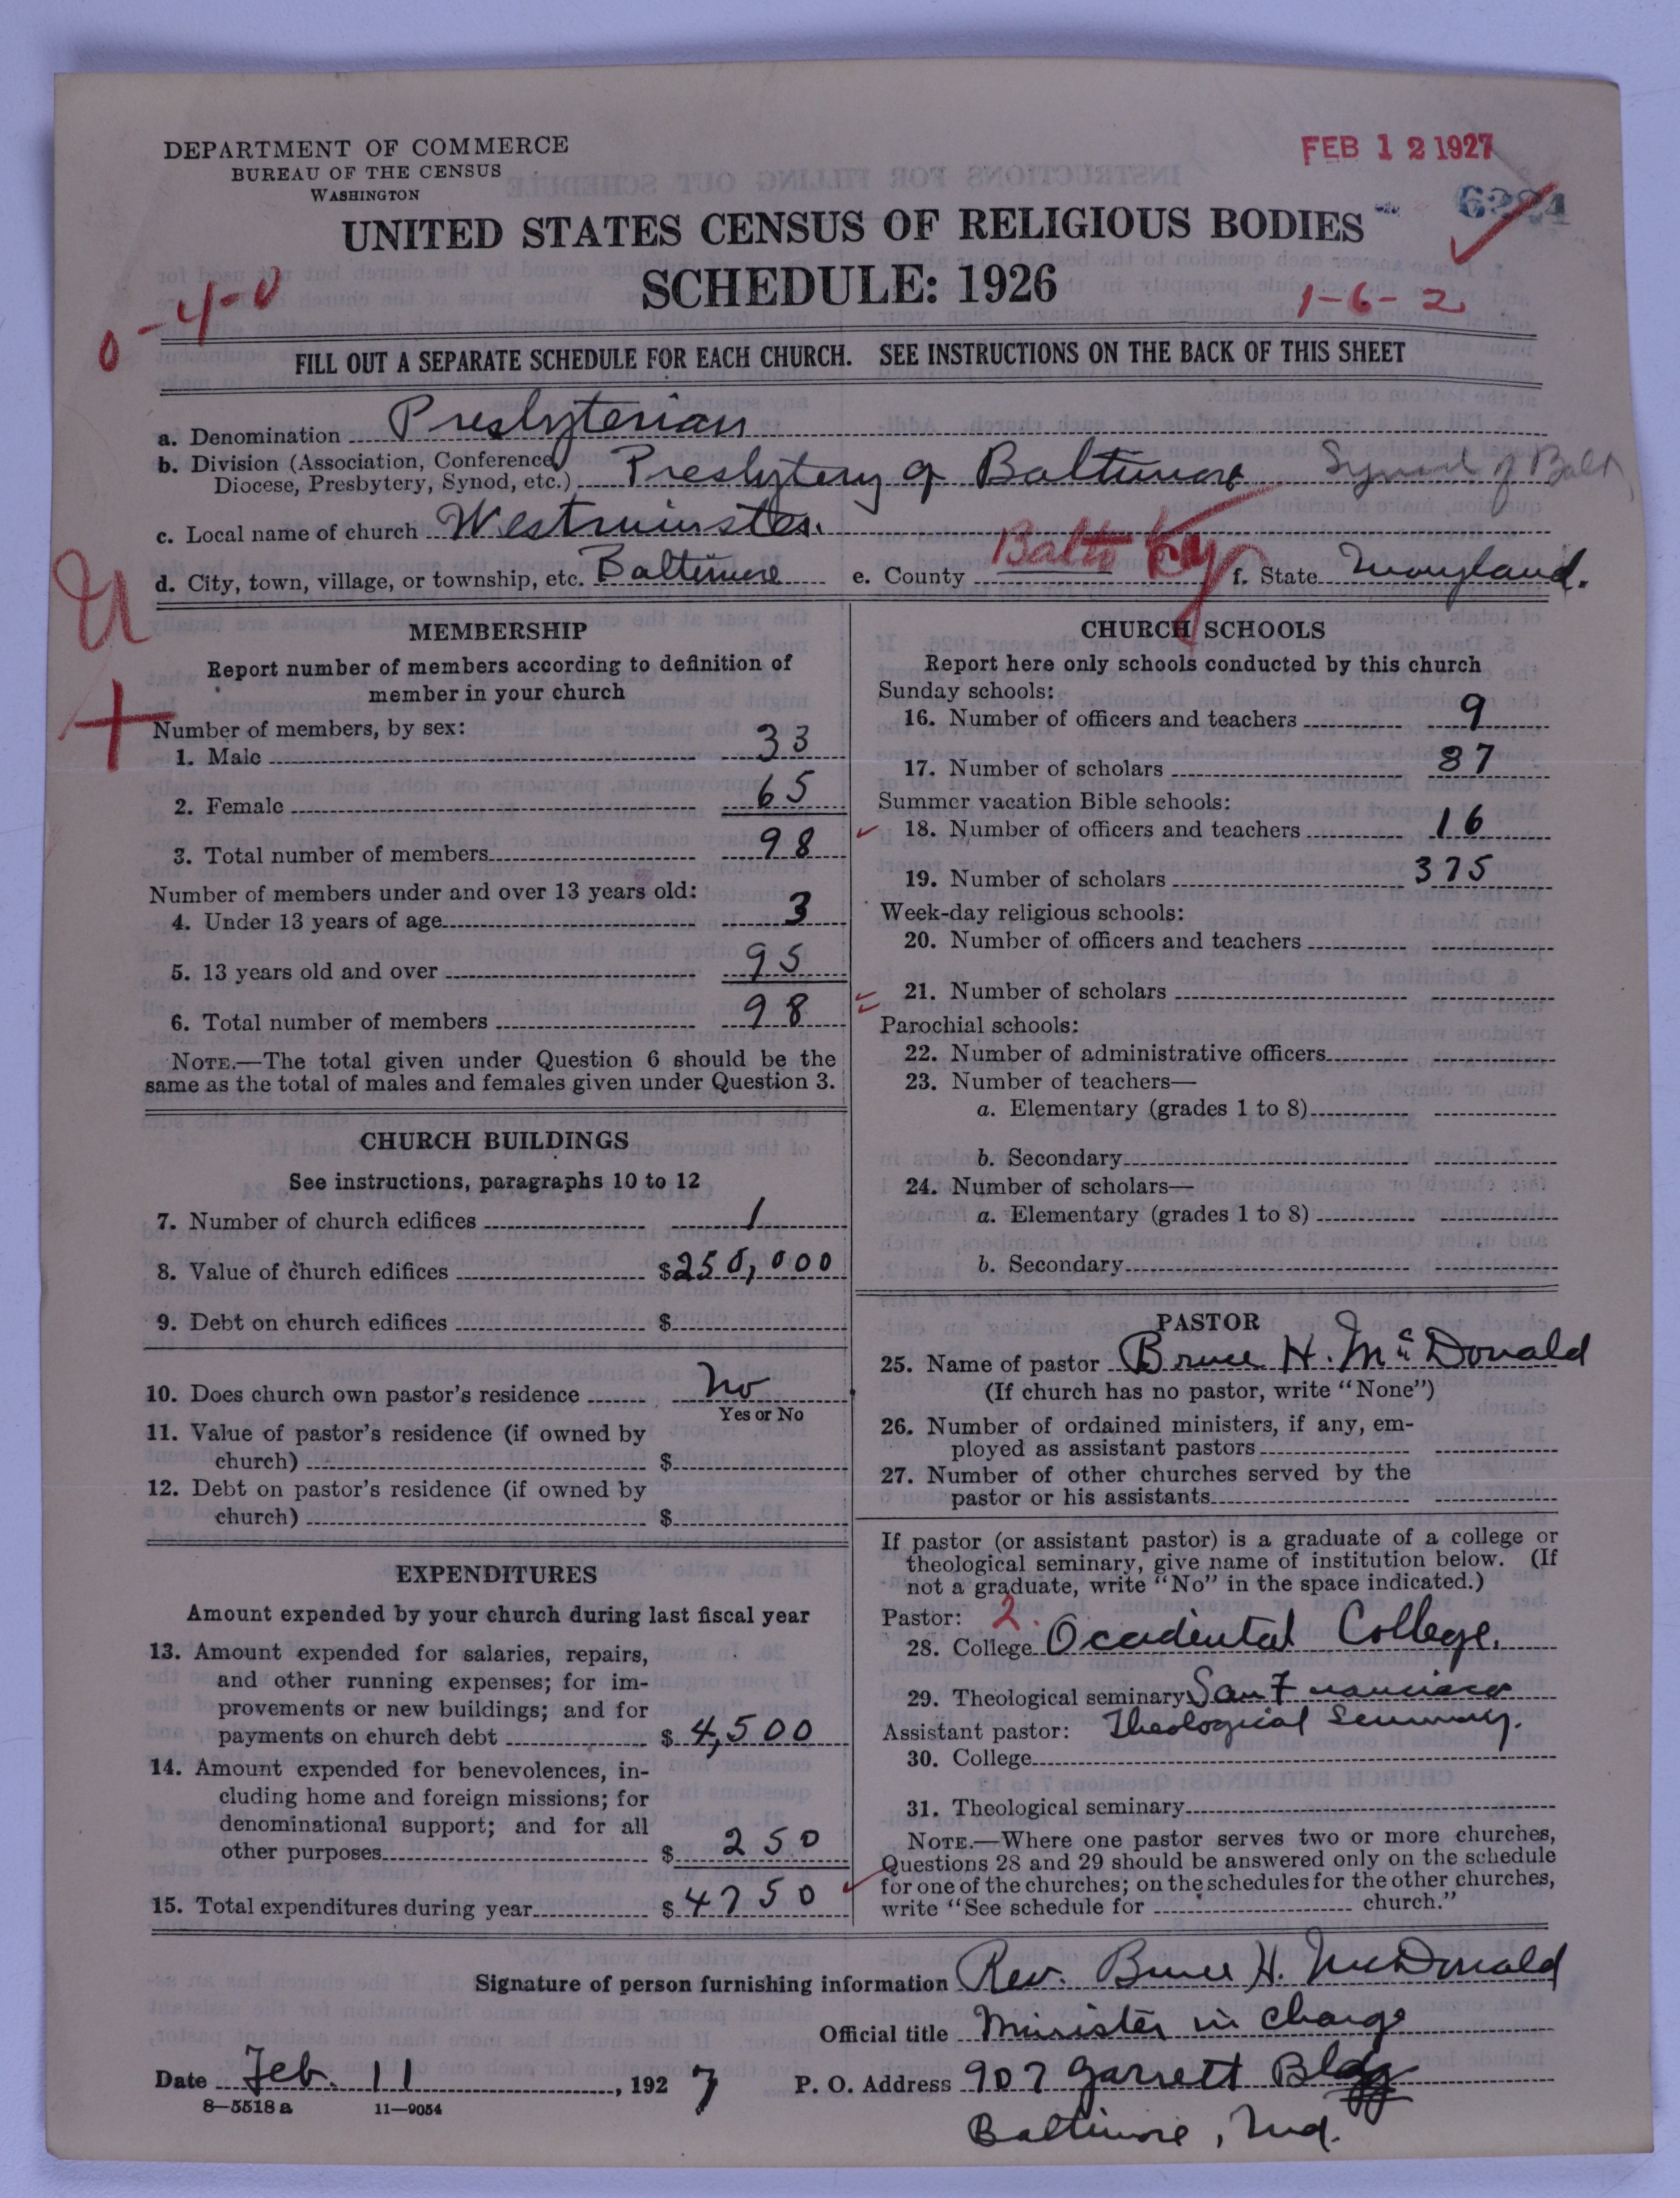 DEPARTMENT OF COMMERCE
BUREAU OF THE CENSUS
WASHINGTON
FEB 12 1927
UNITED STATES CENSUS OF RELIGIOUS BODIES
SCHEDULE: 1926
0-4-0
1-6-2
FILL OUT A SEPARATE SCHEDULE FOR EACH CHURCH. SEE INSTRUCTIONS ON THE BACK OF THIS SHEET
a. Denomination Presbyterian
b. Division (Association, Conference,
Diocese, Presbytery, Synod, etc.) Presbytery of Baltimore Synod of Balt
c. Local name of church Westminster.
d. City, town, village, or township, etc. Baltimore e. County Balto f. State Maryland.
MEMBERSHIP
Report number of members according to definition of
member in your church
Number of members, by sex:
1. Male 33
2. Female 65
3. Total number of members 98
Number of members under and over 13 years old:
4. Under 13 years of age 3
5. 13 years old and over 95
6. Total number of members 98
NOTE.—The total given under Question 6 should be the
same as the total of males and females given under Question 3.
CHURCH BUILDINGS
See instructions, paragraphs 10 to 12
7. Number of church edifices 1
8. Value of church edifices $250,000
9. Debt on church edifices $
10. Does church own pastor's residence No
Yes or No
11. Value of pastor's residence (if owned by
church) $
12. Debt on pastor's residence (if owned by
church) $
EXPENDITURES
Amount expended by your church during last fiscal year
13. Amount expended for salaries, repairs,
and other running expenses; for im-
provements or new buildings; and for
payments on church debt $ 4,500
14. Amount expended for benevolences, in-
cluding home and foreign missions; for
denominational support; and for all
other purposes $ 250
15. Total expenditures during year $ 4750
CHURCH SCHOOLS
Report here only schools conducted by this church
Sunday schools:
16. Number of officers and teachers 9
17. Number of scholars 87
Summer vacation Bible schools:
18. Number of officers and teachers 16
19. Number of scholars 375
Week-day religious schools:
20. Number of officers and teachers
21. Number of scholars
Parochial schools:
22. Number of administrative officers
23. Number of teachers—
a. Elementary (grades 1 to 8)
b. Secondary
24. Number of scholars—
a. Elementary (grades 1 to 8)
b. Secondary
PASTOR
25. Name of pastor Bruce H. McDonald
(If church has no pastor, write "None")
26. Number of ordained ministers, if any, em-
ployed as assistant pastors
27. Number of other churches served by the
pastor or his assistants
If pastor (or assistant pastor) is a graduate of a college or
theological seminary, give name of institution below. (If
not a graduate, write "No" in the space indicated.)
Pastor: 2
28. College Occidental College.
29. Theological seminary San Francisco
Assistant pastor: Theological Seminary.
30. College
31. Theological seminary
NOTE.—Where one pastor serves two or more churches,
Questions 28 and 29 should be answered only on the schedule
for one of the churches; on the schedules for the other churches,
write "See schedule for church."
Signature of person furnishing information Rev. Bruce H. McDonald
Official title Minister in charge
Date Feb. 11, 1927 P. O. Address 907 Garrett Bldg
8—5518 a 11—9054
Baltimore, Md.